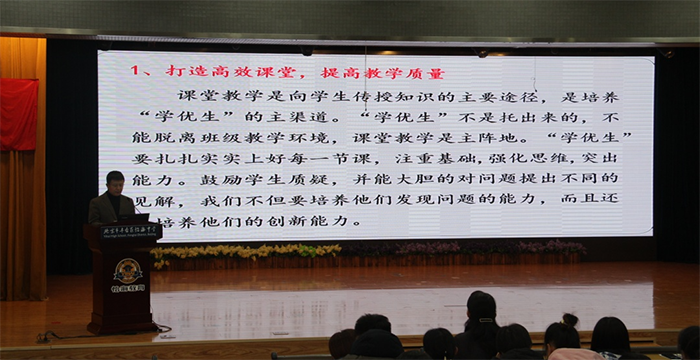 1、打造高效课堂，提高教学质量
课堂教学是向学生传授知识的主要途径，是培养
“学优生”的主渠道。“学优生”不是托出来的，不
能脱离班级教学环境，课堂教学是主阵地。“学优生”
要扎扎实实上好每一节课，注重基础，强化思维，突出
能力。鼓励学生质疑，并能大胆的对问题提出不同的
见解，我们不但要培养他们发现问题的能力，而且还
培养他们的创新能力。